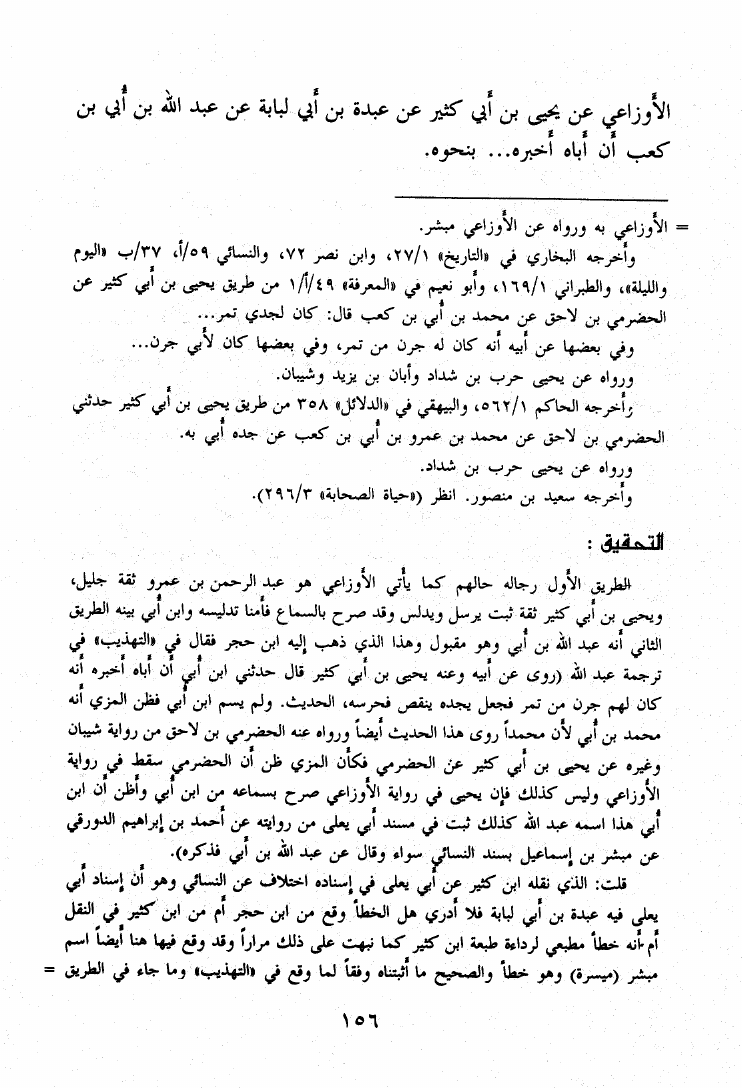 الأوزاعي عن يحيى بن أبي كثير عن عبدة بن أبي لبابة عن عبد الله بن أبي بن
كعب أن أباه أخبره... بنحوه.
= الأوزاعي به ورواه عن الأوزاعي مبشر.
وأخرجه البخاري في «التاريخ» ٢٧/١، وابن نصر ٧٢، والنسائي ٥٩/أ، ٣٧/ب «اليوم
والليلة»، والطبراني ١٦٩/١، وأبو نعيم في «المعرفة» ٤٩/أ/١ من طريق يحيى بن أبي كثير عن
الحضرمي بن لاحق عن محمد بن أبي بن كعب قال: كان لجدي تمر...
وفي بعضها عن أبيه أنه كان له جرن من تمر، وفي بعضها كان لأبي جرن...
ورواه عن يحيى حرب بن شداد وأبان بن يزيد وشيبان.
وأخرجه الحاكم ٥٦٢/١، والبيهقي في «الدلائل» ٣٥٨ من طريق يحيى بن أبي كثير حدثني
الحضرمي بن لاحق عن محمد بن عمرو بن أبي بن كعب عن جده أبي به.
ورواه عن يحيى حرب بن شداد.
وأخرجه سعيد بن منصور. انظر («حياة الصحابة» ٢٩٦/٣).
التحقيق :
الطريق الأول رجاله حالهم كما يأتي الأوزاعي هو عبد الرحمن بن عمرو ثقة جليل،
ويحيى بن أبي كثير ثقة ثبت يرسل ويدلس وقد صرح بالسماع فأمنا تدليسه وابن أبي بينه الطريق
الثاني أنه عبد الله بن أبي وهو مقبول وهذا الذي ذهب إليه ابن حجر فقال في «التهذيب» في
ترجمة عبد الله (روى عن أبيه وعنه يحيى بن أبي كثير قال حدثني ابن أبي أن أباه أخبره أنه
كان لهم جرن من تمر فجعل يجده ينقص فحرسه، الحديث. ولم يسم ابن أبي فظن المزي أنه
محمد بن أبي لأن محمداً روى هذا الحديث أيضاً ورواه عنه الحضرمي بن لاحق من رواية شيبان
وغيره عن يحيى بن أبي كثير عن الحضرمي فكأن المزي ظن أن الحضرمي سقط في رواية
الأوزاعي وليس كذلك فإن يحيى في رواية الأوزاعي صرح بسماعه من ابن أبي وأظن أن ابن
أبي هذا اسمه عبد الله كذلك ثبت في مسند أبي يعلى من روايته عن أحمد بن إبراهيم الدورقي
عن مبشر بن إسماعيل بسند النسائي سواء وقال عن عبد الله بن أبي فذكره).
قلت: الذي نقله ابن كثير عن أبي يعلى في إسناده اختلاف عن النسائي وهو أن إسناد أبي
يعلى فيه عبدة بن أبي لبابة فلا أدري هل الخطأ وقع من ابن حجر أم من ابن كثير في النقل
أم أنه خطأ مطبعي لرداءة طبعة ابن كثير كما نبهت على ذلك مراراً وقد وقع فيها هنا أيضاً اسم
مبشر (ميسرة) وهو خطأ والصحيح ما أثبتناه وفقاً لما وقع في «التهذيب» وما جاء في الطريق =
١٥٦